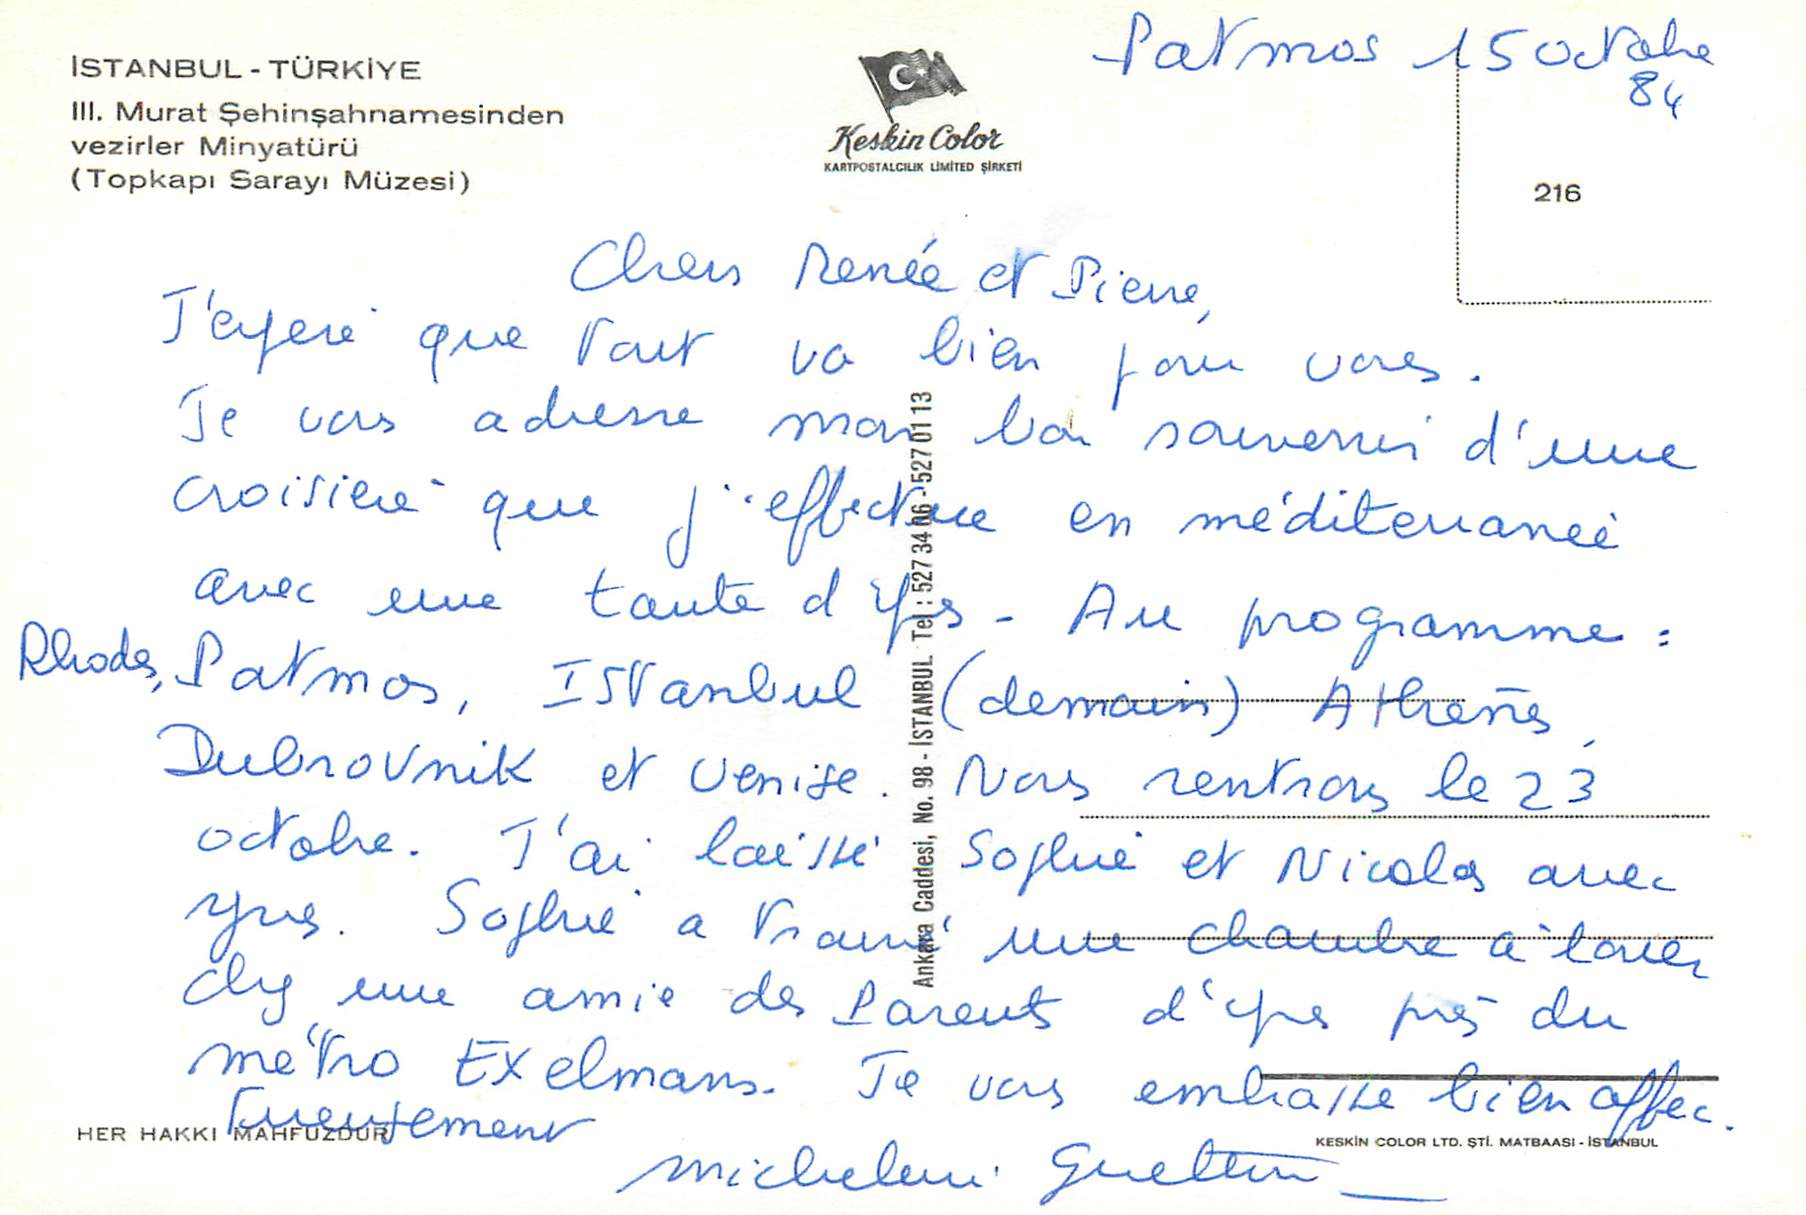 Patmos 15 octobre
84
İSTANBUL - TÜRKİYE
III. Murat Şehinşahnamesinden
vezirler Minyatürü
(Topkapı Sarayı Müzesi)
Keskin Color
KARTPOSTALCILIK LİMİTED ŞİRKETİ
216
Chers Renée et Pierre,
J'espère que tout va bien pour vous.
Je vous adresse mon bon souvenir d'une
croisière que j'effectue en méditerranée
avec une tante d'Yves - Au programme :
Rhodes, Patmos, Istanbul (demain) Athènes,
Dubrovnik et Venise. Nous rentrons le 23
octobre. J'ai laissé Sophie et Nicolas avec
Yves. Sophie a trouvé une chambre à louer
chez une amie des Parents d'Yves près du
métro Exelmans. Je vous embrasse bien affec.
tueusement
Micheline
Ankara Caddesi, No. 98 - İSTANBUL Tel : 527 34 06 - 527 01 13
HER HAKKI MAHFUZDUR
KESKİN COLOR LTD. ŞTİ. MATBAASI - İSTANBUL